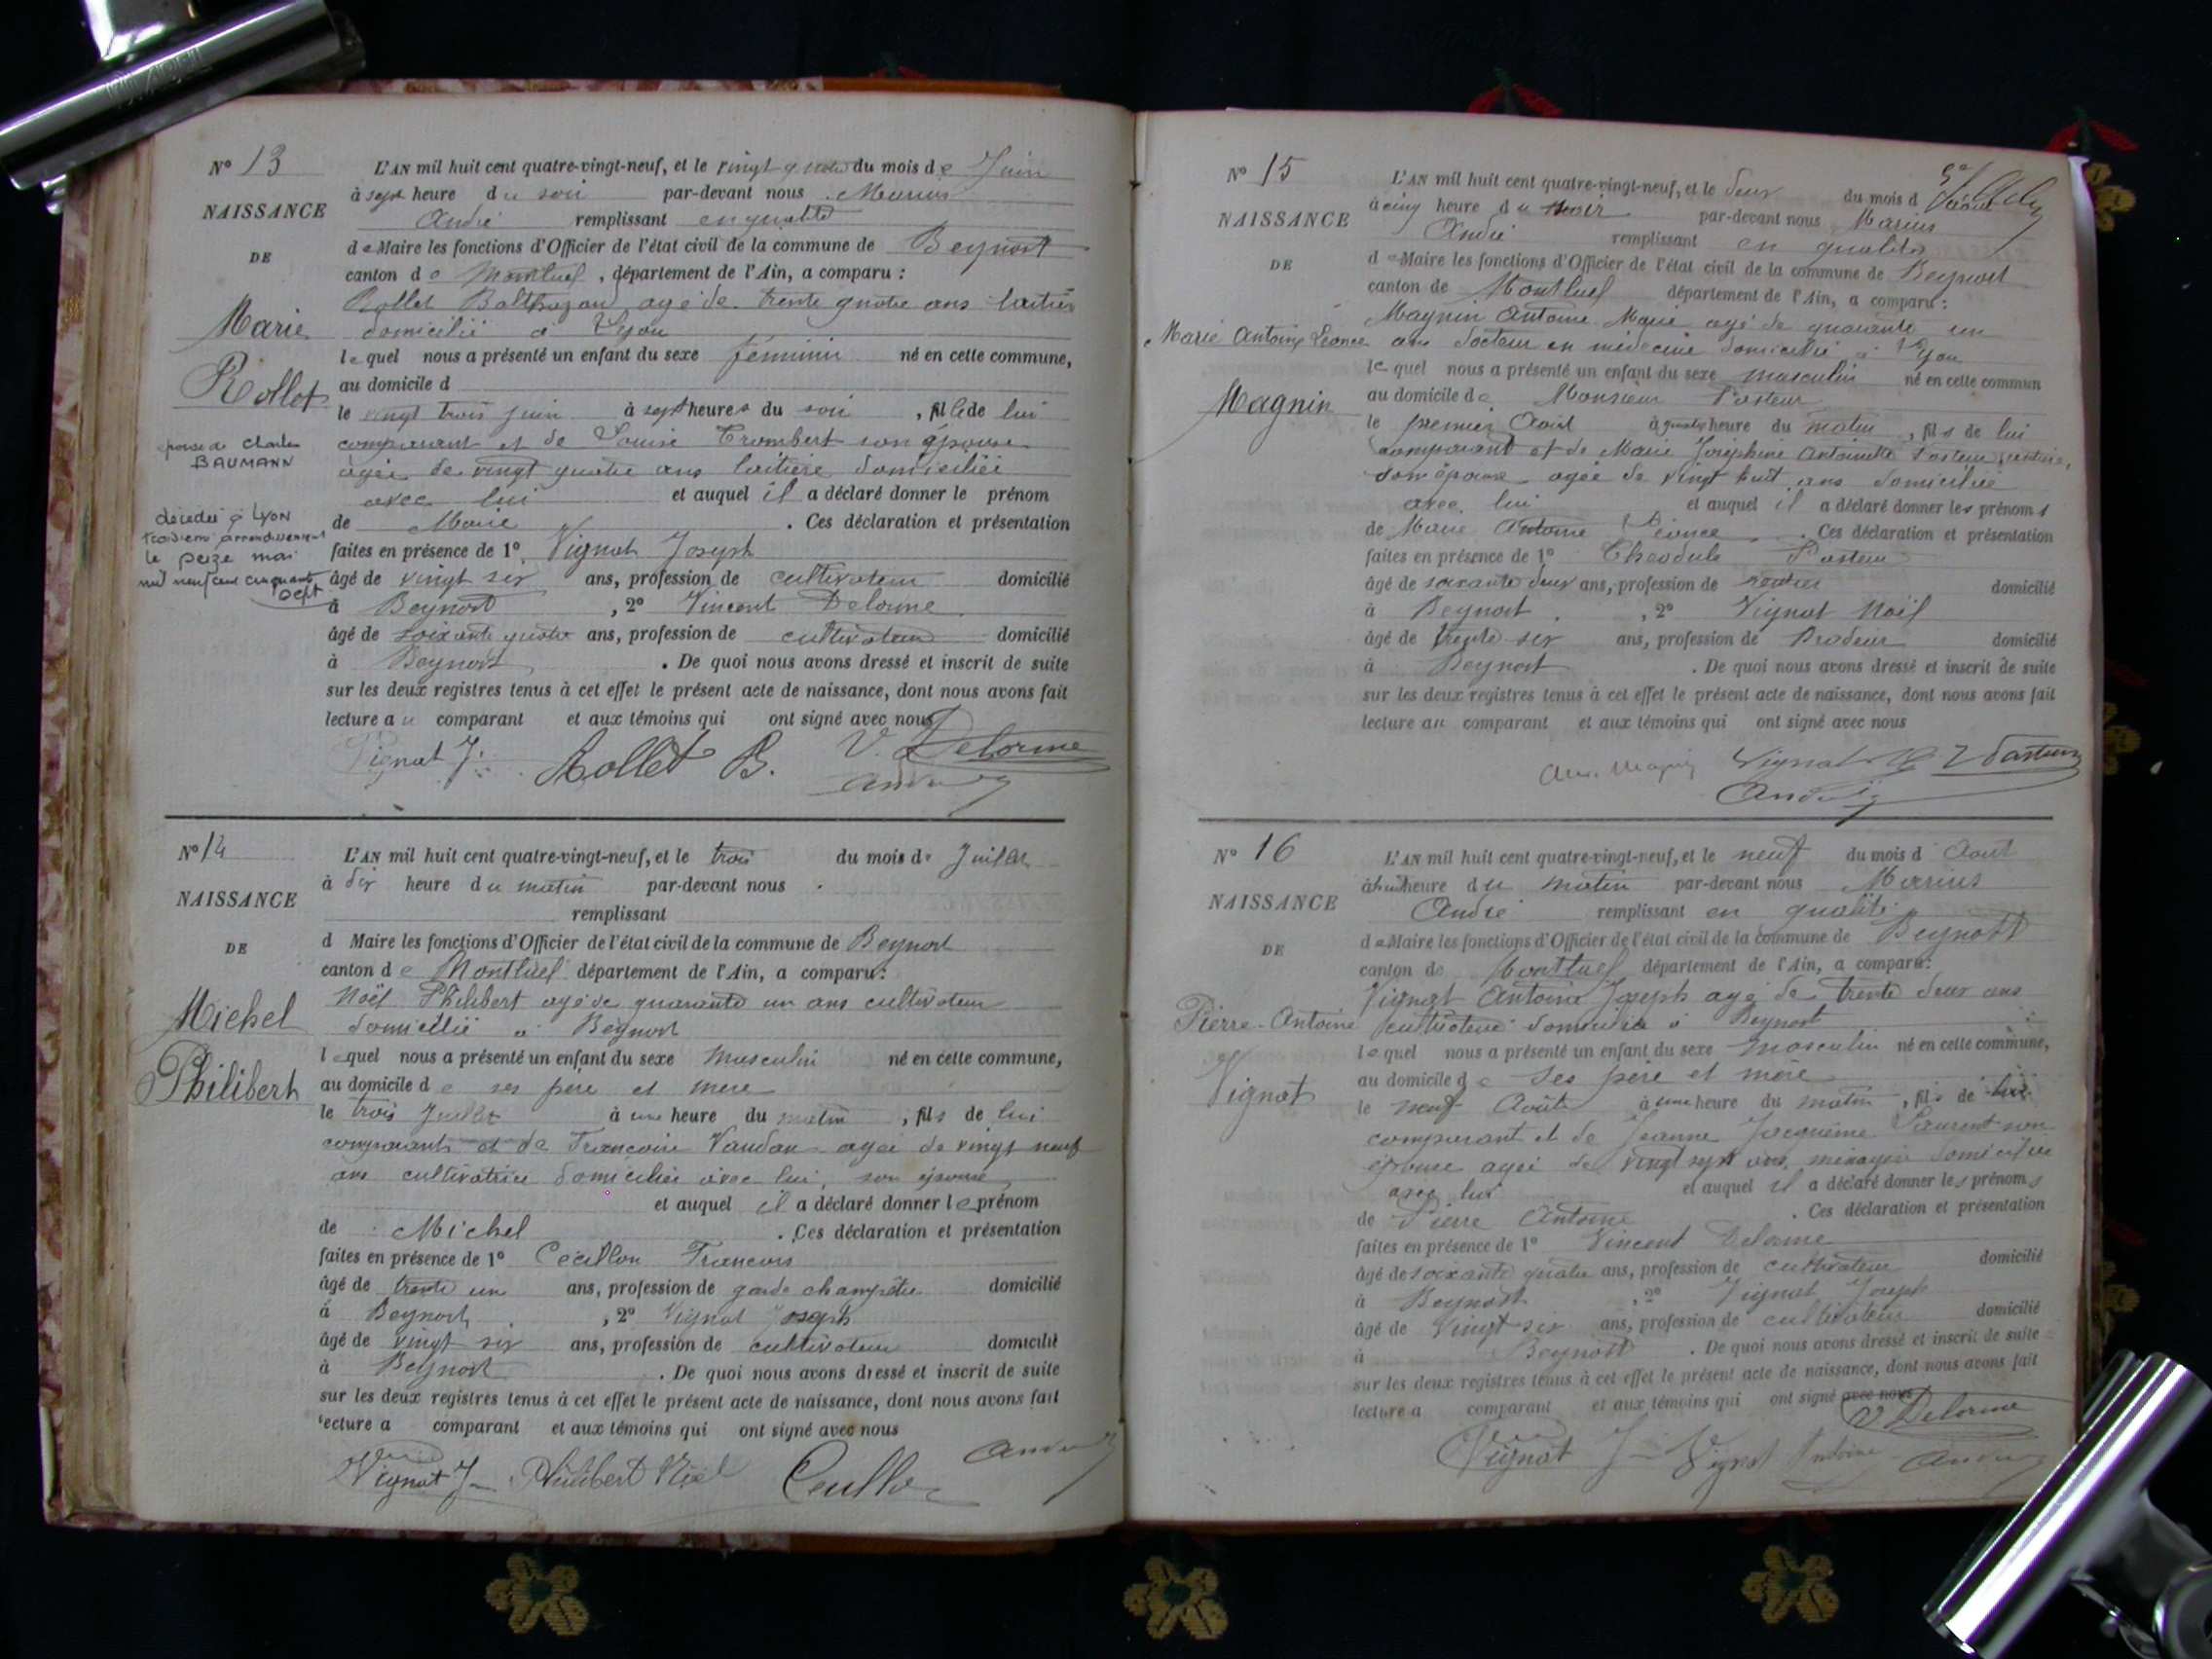 N° 13
NAISSANCE
DE
Marie
Rollet
épouse de Charles
BAUMANN
décédée à LYON
troisième arrondissement
le seize mai
mil neuf cent cinquante
sept
L'AN mil huit cent quatre-vingt-neuf, et le vingt quatre du mois de Juin
à sept heure du soir par-devant nous Marius
André remplissant en qualité
de Maire les fonctions d'Officier de l'état civil de la commune de Beynost
canton de Montluel, département de l'Ain, a comparu :
Rollet Balthazar agé de trente quatre ans laitier
domicilié à Lyon
lequel nous a présenté un enfant du sexe féminin né en cette commune,
au domicile d
le vingt trois juin à sept heures du soir, fille de lui
comparant et de Louise Trombert son épouse
agée de vingt quatre ans laitière domiciliée
avec lui et auquel il a déclaré donner le prénom
de Marie. Ces déclaration et présentation
faites en présence de 1° Vignat Joseph
âgé de vingt six ans, profession de cultivateur domicilié
à Beynost, 2° Vincent Delorme
âgé de soixante quatre ans, profession de cultivateur domicilié
à Beynost. De quoi nous avons dressé et inscrit de suite
sur les deux registres tenus à cet effet le présent acte de naissance, dont nous avons fait
lecture au comparant et aux témoins qui ont signé avec nous
Vignat J. Rollet B. V. Delorme
André
N° 14
NAISSANCE
DE
Michel
Philibert
L'AN mil huit cent quatre-vingt-neuf, et le trois du mois de Juillet
à dix heure du matin par-devant nous
remplissant
d Maire les fonctions d'Officier de l'état civil de la commune de Beynost
canton de Montluel département de l'Ain, a comparu :
Noël Philibert agé de quarante un ans cultivateur
domicilié à Beynost
lequel nous a présenté un enfant du sexe Masculin né en cette commune,
au domicile de ses père et mère
le trois Juillet à une heure du matin, fils de lui
comparant et de Françoise Vaudan agée de vingt neuf
ans cultivatrice domiciliée avec lui, son épouse
et auquel il a déclaré donner le prénom
de Michel. Ces déclaration et présentation
faites en présence de 1° Cecillon Francois
âgé de trente un ans, profession de garde champêtre domicilié
à Beynost, 2° Vignat Joseph
âgé de vingt six ans, profession de cultivateur domicilié
à Beynost. De quoi nous avons dressé et inscrit de suite
sur les deux registres tenus à cet effet le présent acte de naissance, dont nous avons fait
lecture a comparant et aux témoins qui ont signé avec nous
André
Vignat J Philibert Noël
N° 15
NAISSANCE
DE
Marie Antoine Léonce
Magnin
L'AN mil huit cent quatre-vingt-neuf, et le deux du mois d Août
à cinq heure du soir par-devant nous Marius
André remplissant en qualité
de Maire les fonctions d'Officier de l'état civil de la commune de Beynost
canton de Montluel département de l'Ain, a comparu :
Magnin Antoine Marie agé de quarante un
ans docteur en médecine domicilié à Lyon
lequel nous a présenté un enfant du sexe masculin né en cette commun
au domicile de Monsieur Pasteur
le premier Août à quatre heure du matin, fils de lui
comparant et de Marie Joséphine Antoinette Pasteur rentière,
son épouse agée de vingt huit ans domiciliée
avec lui et auquel il a déclaré donner les prénoms
de Marie Antoine Léonce. Ces déclaration et présentation
faites en présence de 1° Théodule Pasteur
âgé de soixante deux ans, profession de rentier domicilié
à Beynost, 2° Vignat Noël
âgé de trente six ans, profession de Brodeur domicilié
à Beynost. De quoi nous avons dressé et inscrit de suite
sur les deux registres tenus à cet effet le présent acte de naissance, dont nous avons fait
lecture au comparant et aux témoins qui ont signé avec nous
Ant. Magnin Vignat T Pasteur
André
N° 16
NAISSANCE
DE
Pierre-Antoine
Vignat
L'AN mil huit cent quatre-vingt-neuf, et le neuf du mois d Aout
à huit heure du matin par-devant nous Marius
André remplissant en qualité
de Maire les fonctions d'Officier de l'état civil de la commune de Beynost
canton de Montluel département de l'Ain, a comparu :
Vignat Antoine Joseph agé de trente deux ans
cultivateur domicilié à Beynost
lequel nous a présenté un enfant du sexe masculin né en cette commune,
au domicile de ses père et mère
le neuf Août à une heure du matin, fils de lui
comparant et de Jeanne Jacqueme Laurent son
épouse agée de vingt sept ans, ménagère domiciliée
avec lui et auquel il a déclaré donner les prénoms
de Pierre Antoine. Ces déclaration et présentation
faites en présence de 1° Vincent Delorme
âgé de soixante quatre ans, profession de cultivateur domicilié
à Beynost, 2° Vignat Joseph
âgé de vingt six ans, profession de cultivateur domicilié
à Beynost. De quoi nous avons dressé et inscrit de suite
sur les deux registres tenus à cet effet le présent acte de naissance, dont nous avons fait
lecture a comparant et aux témoins qui ont signé avec nous
V Delorme
Vignat J Vignat Antoine André